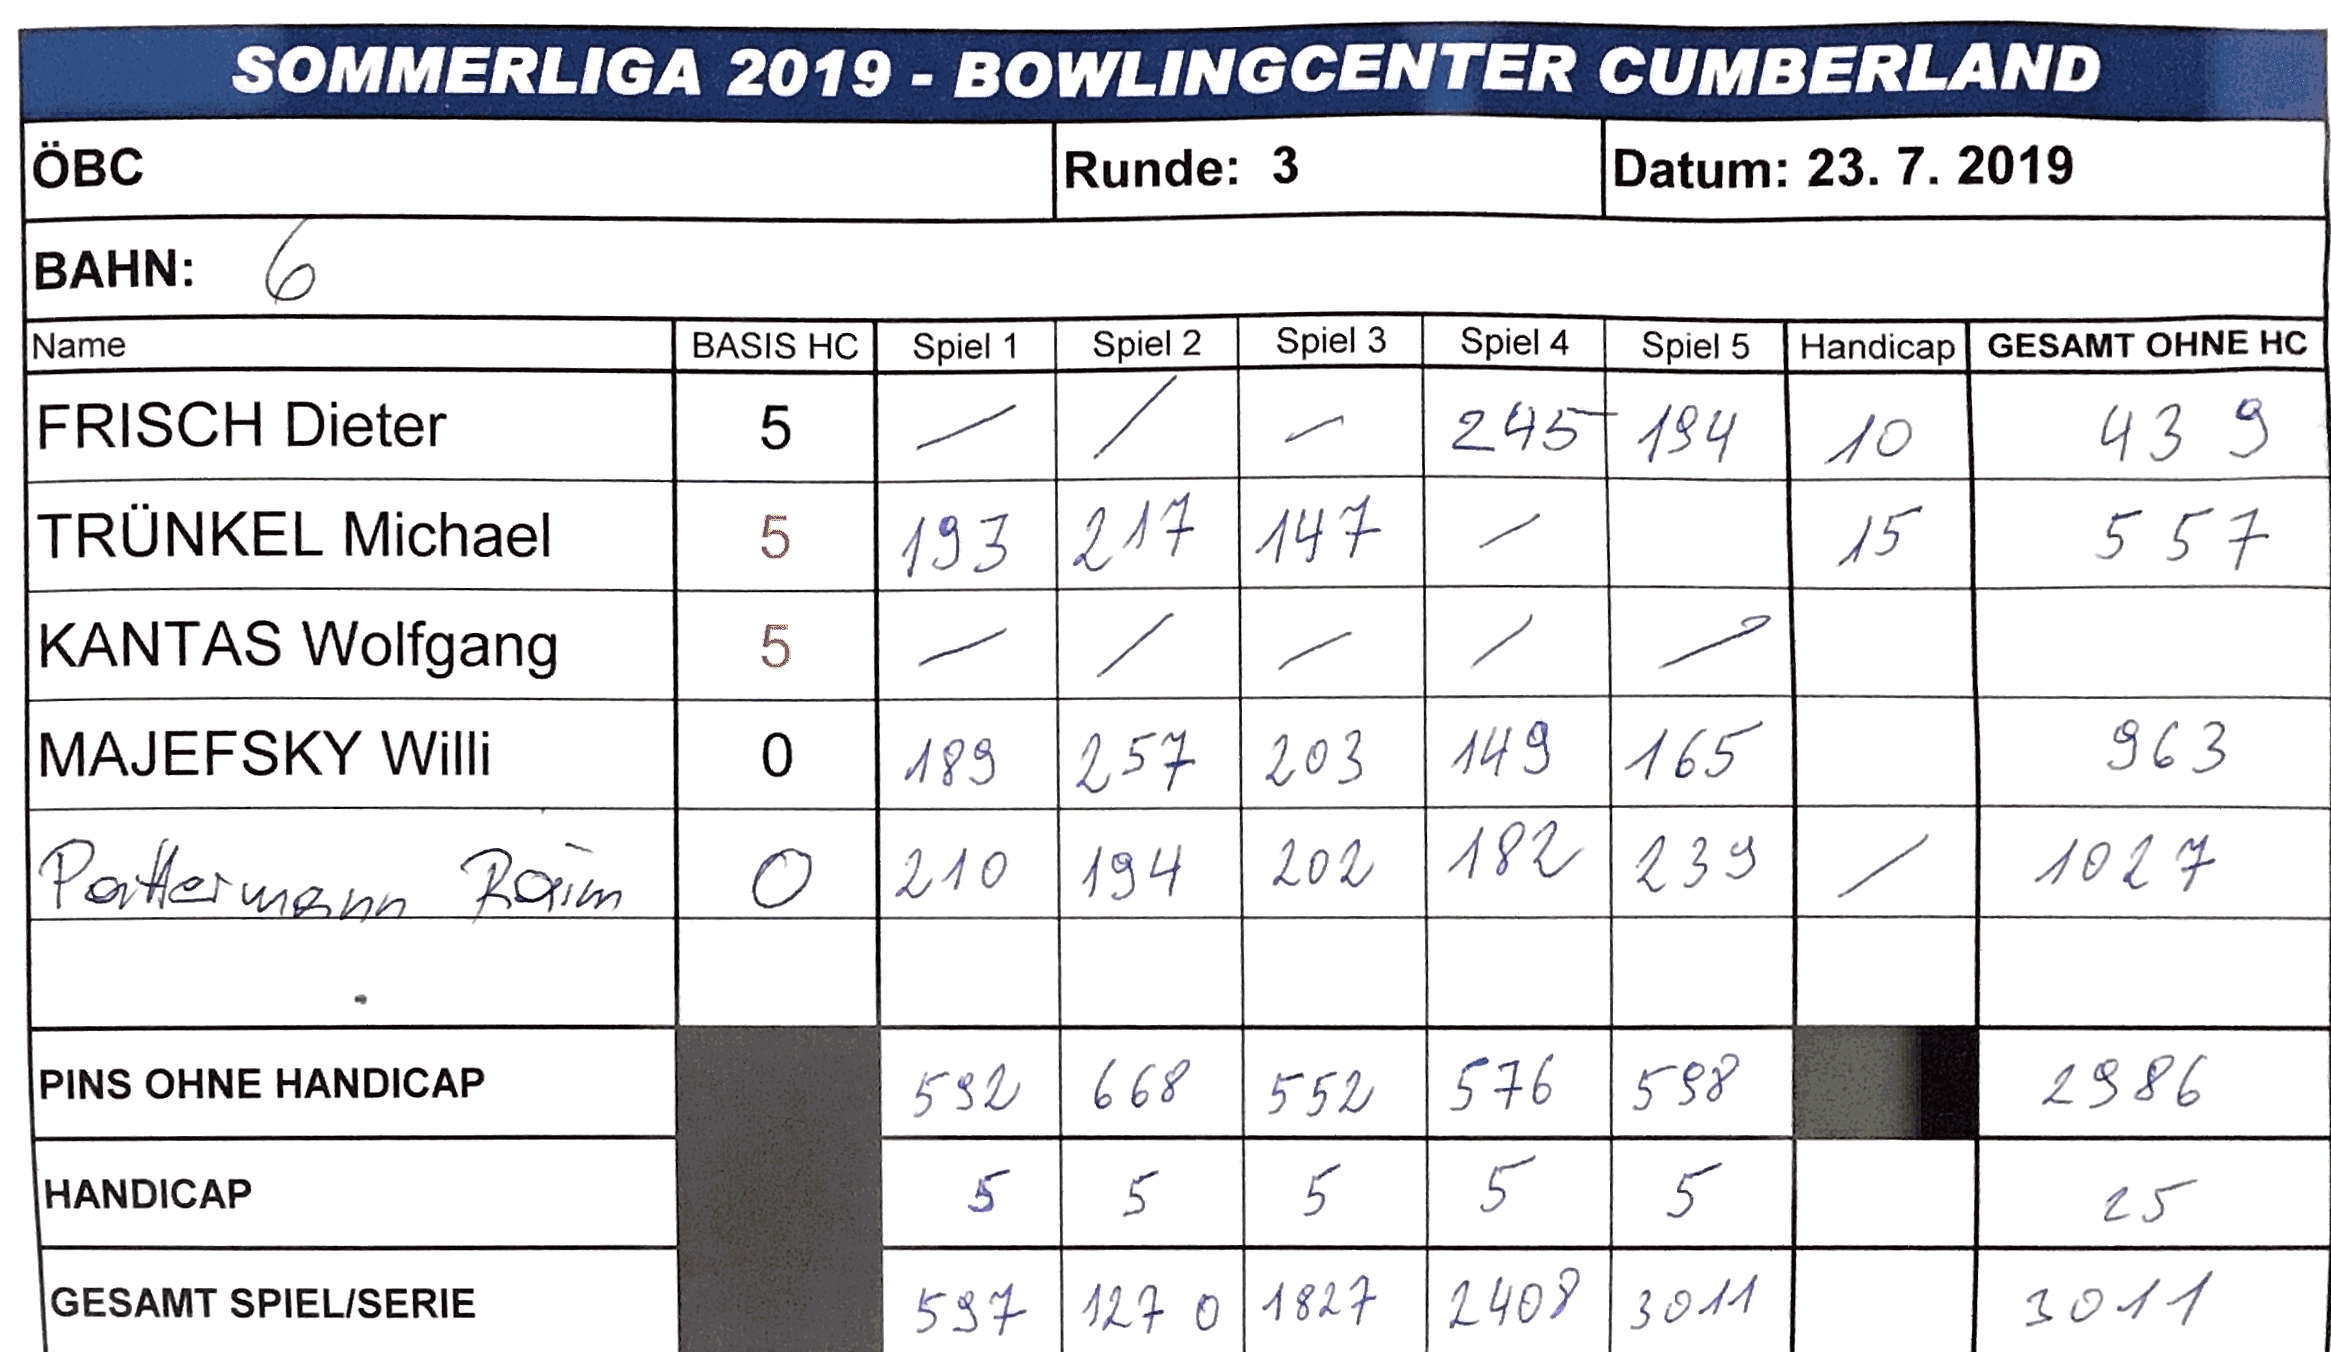 SOMMERLIGA 2019 - BOWLINGCENTER CUMBERLAND
ÖBC Runde: 3 Datum: 23. 7. 2019
BAHN: 6
Name BASIS HC Spiel 1 Spiel 2 Spiel 3 Spiel 4 Spiel 5 Handicap GESAMT OHNE HC
FRISCH Dieter 5 / / - 245 194 10 439
TRÜNKEL Michael 5 193 217 147 / 15 557
KANTAS Wolfgang 5 / / / / /
MAJEFSKY Willi 0 189 257 203 149 165 963
Pattermann 0 210 194 202 182 239 / 1027
PINS OHNE HANDICAP 592 668 552 576 598 2986
HANDICAP 5 5 5 5 5 25
GESAMT SPIEL/SERIE 597 1270 1827 2408 3011 3011